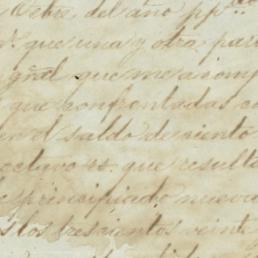 Octbre. del año pp.do
que una y otra par
gral. que me acomp
que confrontadas co
en el saldo de siento
octavo rs. que result
principiado nueva
los trescientos veinte